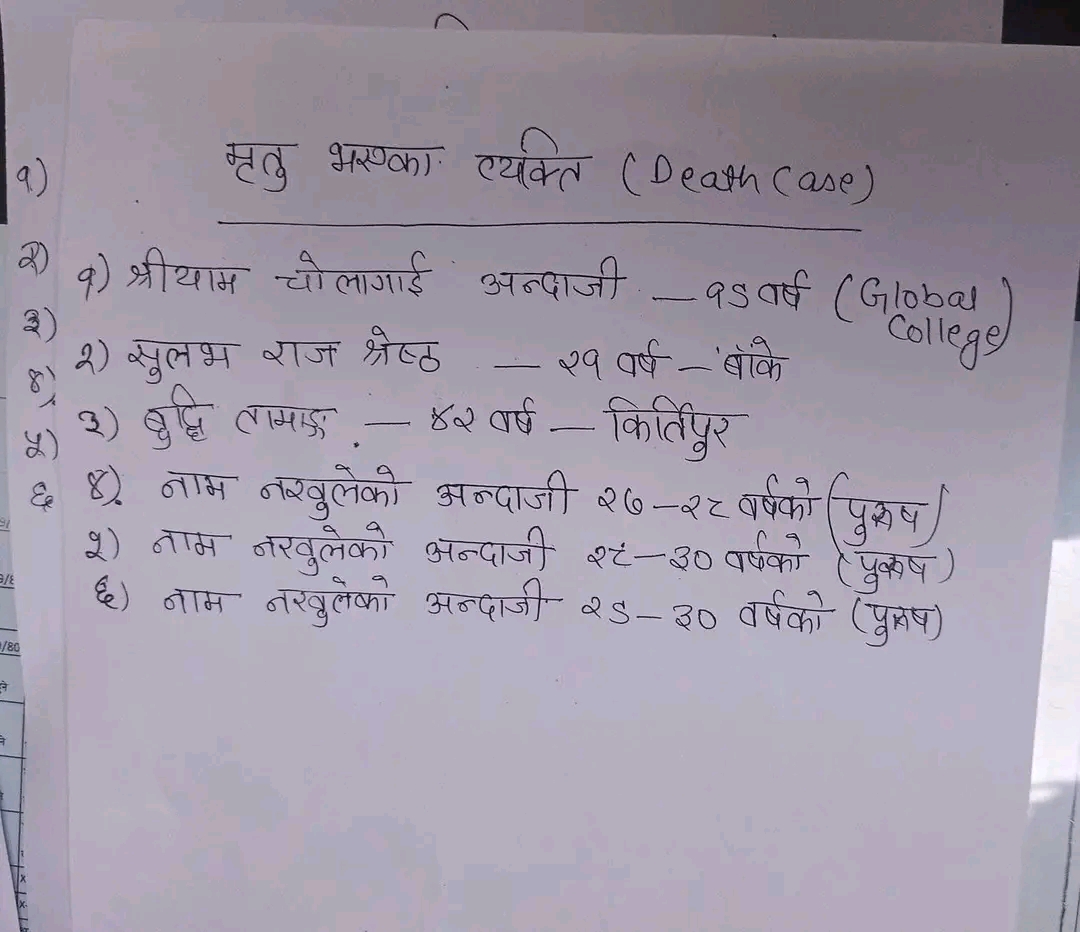 मृतु भएका व्यक्ति (Death Case)
१) श्रीयाम चोलागाई अन्दाजी – १९ वर्ष (Global College)
२) सुलभ राज श्रेष्ठ – २१ वर्ष – बाँके
३) बुद्धि तामाङ – ४२ वर्ष – किर्तिपुर
४) नाम नखुलेको अन्दाजी २७–२८ वर्षको (पुरुष)
५) नाम नखुलेको अन्दाजी २८–३० वर्षको (पुरुष)
६) नाम नखुलेको अन्दाजी २९–३० वर्षको (पुरुष)
१)
२)
३)
४)
५)
६
/80